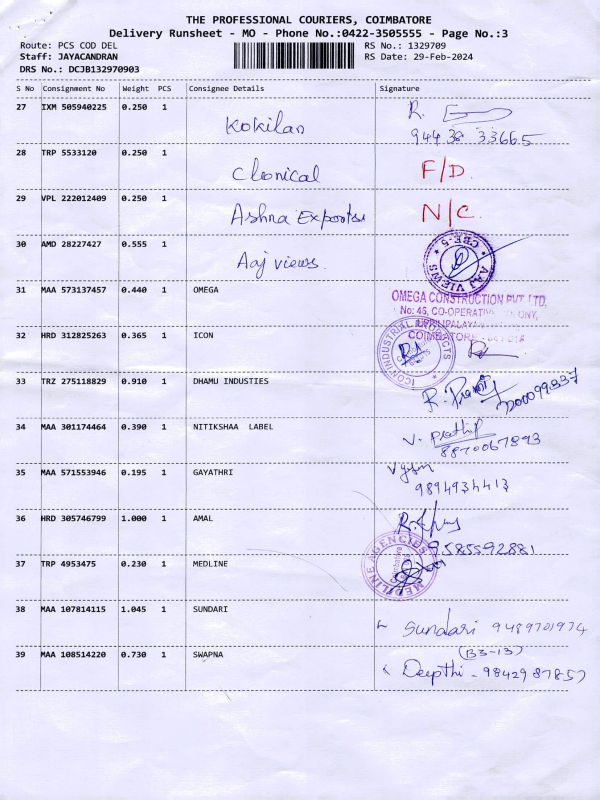 THE PROFESSIONAL COURIERS, COIMBATORE
Delivery Runsheet - MO - Phone No.:0422-3505555 - Page No.:3
Route: PCS COD DEL RS No.: 1329709
Staff: JAYACANDRAN RS Date: 29-Feb-2024
DRS No.: DCJB132970903
S No Consignment No Weight PCS Consignee Details Signature
27 IXM 505940225 0.250 1 Kokilan R.
94438 33665
28 TRP 5533120 0.250 1 Clonical F/D.
29 VPL 222012409 0.250 1 Ashna Exports N/C.
30 AMD 28227427 0.555 1 Aaj views. AAJ VIEWS * CBE-5 *
31 MAA 573137457 0.440 1 OMEGA OMEGA CONSTRUCTION PVT LTD,
No: 46, CO-OPERATIVE
COIMBATORE
32 HRD 312825263 0.365 1 ICON ICON INDUSTRIAL PRODUCTS
33 TRZ 275118829 0.910 1 DHAMU INDUSTIES R.
34 MAA 301174464 0.390 1 NITIKSHAA LABEL V. prathip
8870067893
35 MAA 571553946 0.195 1 GAYATHRI
9894934413
36 HRD 305746799 1.000 1 AMAL
9585592881
37 TRP 4953475 0.230 1 MEDLINE MEDLINE AGENCIES
38 MAA 107814115 1.045 1 SUNDARI Sundari 9489701974
(B3-13)
39 MAA 108514220 0.730 1 SWAPNA Deepthi - 9842987857